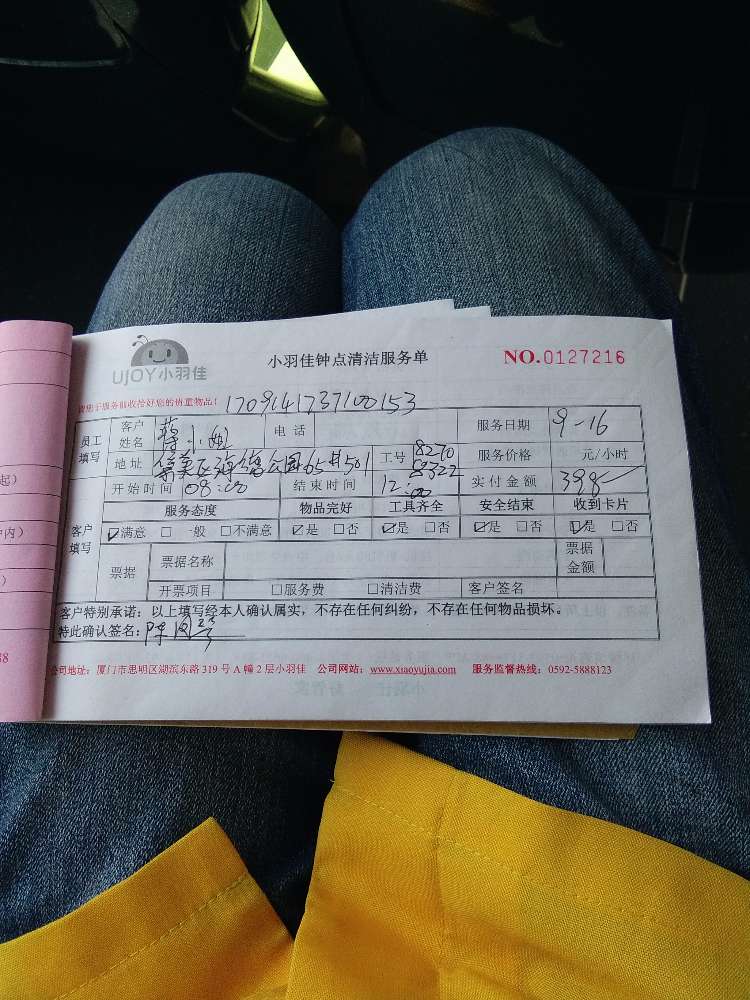 UJOY小羽佳
小羽佳钟点清洁服务单
NO.0127216
170914173710
员工填写 客户姓名 小姐 电话 服务日期 9-16
地址 集美区 公园 501 工号 8270 8322 服务价格 元/小时
开始时间 08:00 结束时间 12:00 实付金额 398
客户填写 服务态度 物品完好 工具齐全 安全结束 收到卡片
☑满意 □一般 □不满意 ☑是 □否 ☑是 □否 ☑是 □否 ☑是 □否
票据 票据名称 票据金额
开票项目 □服务费 □清洁费 客户签名
客户特别承诺：以上填写经本人确认属实，不存在任何纠纷，不存在任何物品损坏。
特此确认签名：陈
公司地址：厦门市思明区湖滨东路 319 号 A 幢 2 层小羽佳 公司网站：www.xiaoyujia.com 服务监督热线：0592-5888123